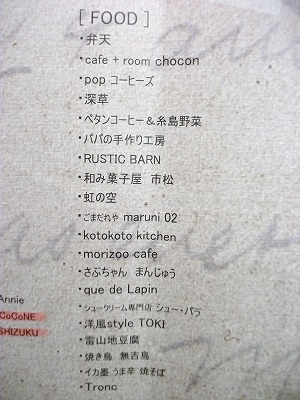 [ FOOD ]
・弁天
・cafe + room chocon
・pop コーヒーズ
・深草
・ペタンコーヒー＆糸島野菜
・パパの手作り工房
・RUSTIC BARN
・和み菓子屋 市松
・虹の空
・ごまだれや maruni 02
・kotokoto kitchen
・morizoo cafe
・さふちゃん まんじゅう
・que de Lapin
・シュークリーム専門店 シュー・パラ
・洋風style TOKI
・雷山地豆腐
・焼き鳥 無吉鳥
・イカ墨 うま辛 焼そば
・Tronc
Annie
CoCoNE
SHIZUKU